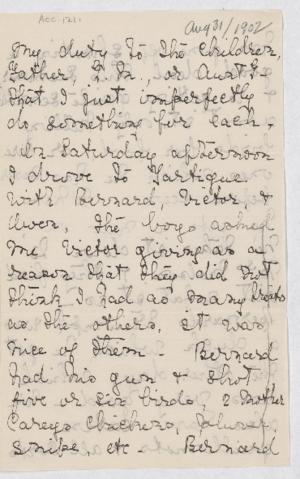 Acc. 1211
Aug 31/1902
my duty to the children,
Father, L. M., or Aunt E.
that I just imperfectly
do something for each.
On Saturday afternoon
I drove to Tartigue
with Bernard, Victor &
Owen, the boys asked
me Victor giving as a
reason that they did not
think I had as many treats
as the others, it was
nice of them - Bernard
had his gun & shot
five or six birds, 2 Mother
Careys Chickens, plover,
snipe, etc - Bernard